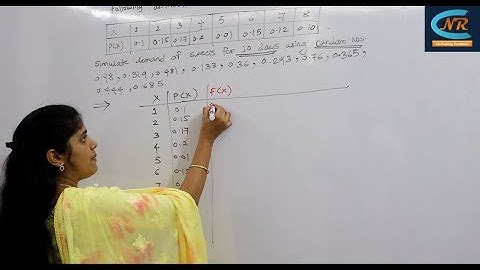 following
X 1 2 3 4 5 6 7 8
P(X) 0.1 0.15 0.17 0.2 0.01 0.15 0.12 0.10
Simulate demand of sweets for 10 days using random nos.
0.48, 0.319, 0.481, 0.133, 0.36, 0.293, 0.76, 0.365,
0.444, 0.685.
X P(X) F(X)
1 0.1
2 0.15
3 0.17
4 0.2
5 0.01
6 0.15
7
NR